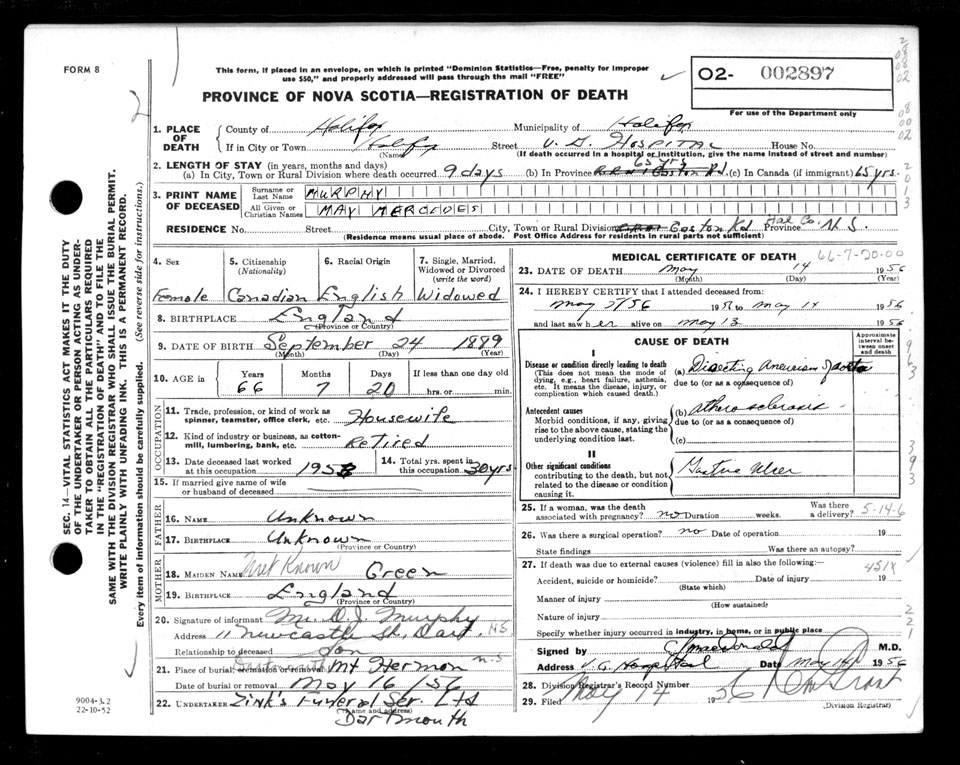 FORM 8
This form, if placed in an envelope, on which is printed "Dominion Statistics—Free, penalty for improper
use $50," and properly addressed will pass through the mail "FREE"
O2- 002897
For use of the Department only
PROVINCE OF NOVA SCOTIA—REGISTRATION OF DEATH
1. PLACE OF DEATH County of Halifax Municipality of Halifax
If in City or Town Halifax Street V. G. HOSPITAL House No.
(Name) (If death occurred in a hospital or institution, give the name instead of street and number)
2. LENGTH OF STAY (in years, months and days)
(a) In City, Town or Rural Division where death occurred 9 days (b) In Province 65 yrs (c) In Canada (if immigrant) 65 yrs.
3. PRINT NAME OF DECEASED
Surname or Last Name MURPHY
All Given or Christian Names MAY MERCEDES
RESIDENCE No. Street City, Town or Rural Division Gaston Rd Hal Co. Province N.S.
(Residence means usual place of abode. Post Office Address for residents in rural parts not sufficient)
4. Sex Female
5. Citizenship (Nationality) Canadian
6. Racial Origin English
7. Single, Married, Widowed or Divorced (write the word) Widowed
8. BIRTHPLACE England
(Province or Country)
9. DATE OF BIRTH September 24 1889
(Month) (Day) (Year)
10. AGE in Years 66 Months 7 Days 20 If less than one day old hrs. or min.
OCCUPATION
11. Trade, profession, or kind of work as spinner, teamster, office clerk, etc. Housewife
12. Kind of industry or business, as cotton-mill, lumbering, bank, etc. Retired
13. Date deceased last worked at this occupation
14. Total yrs. spent in this occupation 30 yrs
15. If married give name of wife or husband of deceased
FATHER
16. NAME Unknown
17. BIRTHPLACE Unknown
(Province or Country)
MOTHER
18. MAIDEN NAME Not Known Green
19. BIRTHPLACE England
(Province or Country)
20. Signature of informant Mr. D. J. Murphy
Address 11 Newcastle St. Dart. NS
Relationship to deceased Son
21. Place of burial, cremation or removal Mt Hermon N.S
Date of burial or removal May 16/56
22. UNDERTAKER Zink's Funeral Ser. Ltd
(Name and address)
Dartmouth
9004-3.2
22-10-52
MEDICAL CERTIFICATE OF DEATH 66-7-20-00
23. DATE OF DEATH May 14 1956
(Month) (Day)
24. I HEREBY CERTIFY that I attended deceased from:
May 7/56 1956 to May 14 1956
and last saw her alive on May 13 1956
CAUSE OF DEATH
Approximate interval between onset and death
I
Disease or condition directly leading to death
(This does not mean the mode of dying, e.g., heart failure, asthenia, etc. It means the disease, injury, or complication which caused death.)
(a) Dissecting Aneurism of aorta
due to (or as a consequence of)
Antecedent causes
Morbid conditions, if any, giving rise to the above cause, stating the underlying condition last.
(b) atherosclerosis
due to (or as a consequence of)
(c)
II
Other significant conditions
contributing to the death, but not related to the disease or condition causing it.
Gastric Ulcer
25. If a woman, was the death associated with pregnancy? no Duration weeks. Was there a delivery? 5-14-6
26. Was there a surgical operation? no Date of operation 19
State findings Was there an autopsy?
27. If death was due to external causes (violence) fill in also the following:— 451X
Accident, suicide or homicide? Date of injury 19
(State which)
Manner of injury
(How sustained)
Nature of injury
Specify whether injury occurred in industry, in home, or in public place
Signed MacDonald M.D.
Address V. G. Hospital Date May 1956
28. Division Registrar's Record Number
29. Filed May 1956
(Division Registrar)
SEC. 14—VITAL STATISTICS ACT MAKES IT THE DUTY
OF THE UNDERTAKER OR PERSON ACTING AS UNDER-
TAKER TO OBTAIN ALL THE PARTICULARS REQUIRED
IN THE "REGISTRATION OF DEATH" AND TO FILE THE
SAME WITH THE DIVISION REGISTRAR WHO SHALL ISSUE THE BURIAL PERMIT.
WRITE PLAINLY WITH UNFADING INK. THIS IS A PERMANENT RECORD.
Every item of information should be carefully supplied. (See reverse side for instructions.)